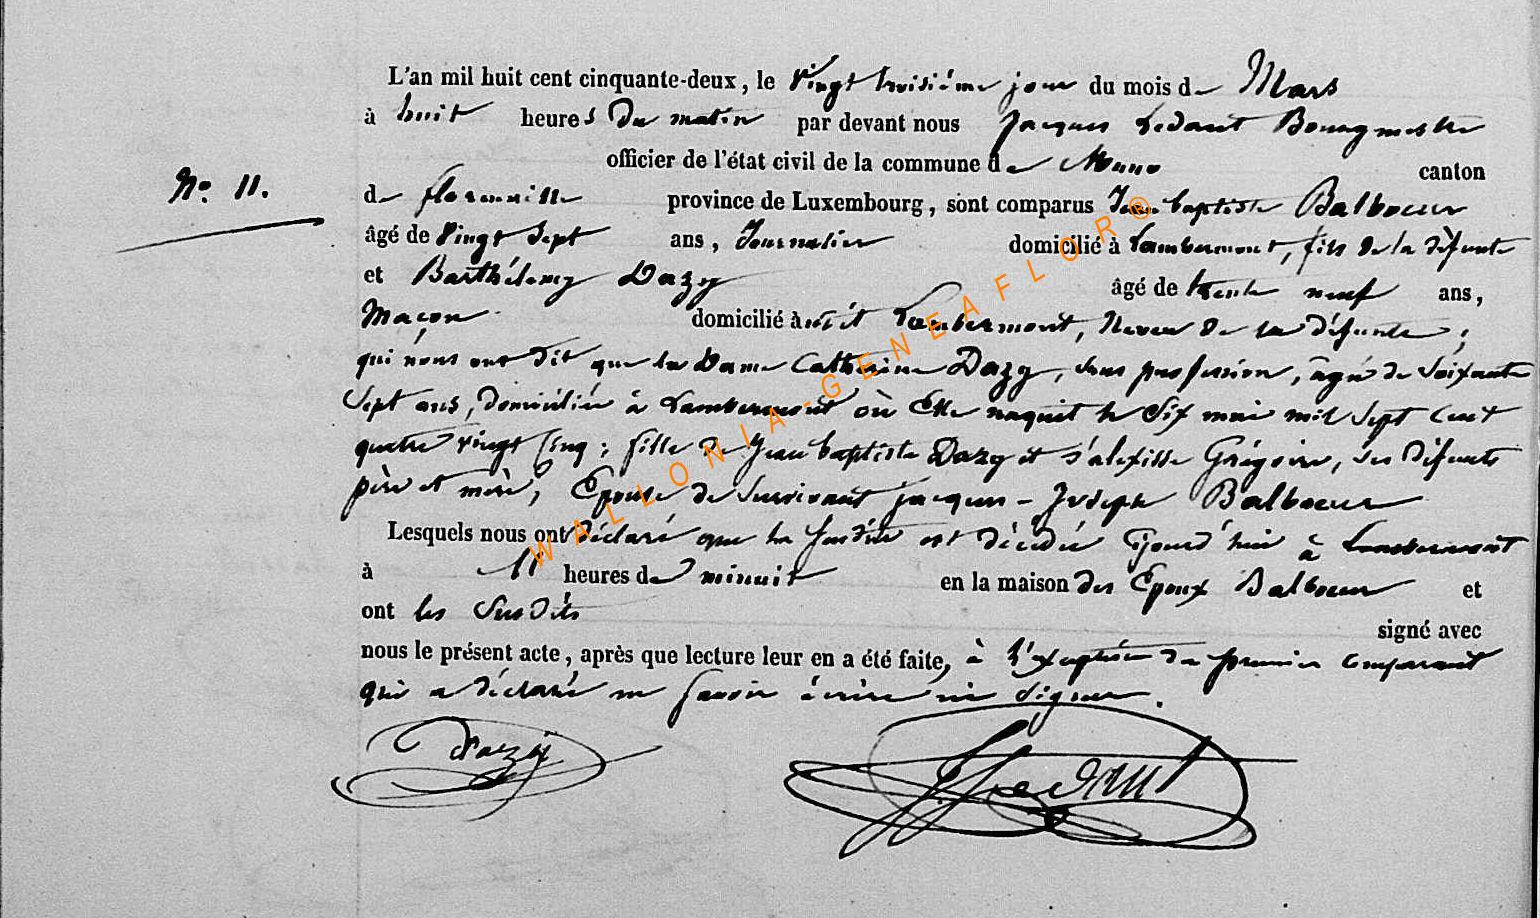 L'an mil huit cent cinquante-deux, le vingt troisième jour du mois de Mars
à huit heures du matin par devant nous Jacques Ledant Bourgmestre
officier de l'état civil de la commune de Muno canton
No. 11.
de florenville province de Luxembourg, sont comparus Jean baptiste Balboeur
âgé de vingt sept ans, Journalier domicilié à Lambermont, fils de la défunte
et Barthélemy Dazy âgé de trente neuf ans,
Maçon domicilié à Lambermont, Neveu de la défunte;
qui nous ont dit que la Dame Catherine Dazy, sans profession, agée de soixante
sept ans, domiciliée à Lambermont où Elle naquit le six mai mil sept cent
quatre vingt cinq; fille de Jean baptiste Dazy et Grégoire, ses défunts
père et mère, Epouse de survivant jacques-Joseph Balboeur
Lesquels nous ont déclaré que la est décédée à Lambermont
à 11 heures de minuit en la maison des Epoux Balboeur et
ont les susdits signé avec
nous le présent acte, après que lecture leur en a été faite, à l'exception du premier comparant
qui a déclaré ne savoir écrire ni signer.
Dazy Ledant
WALLONIA-GENEAFLOR®